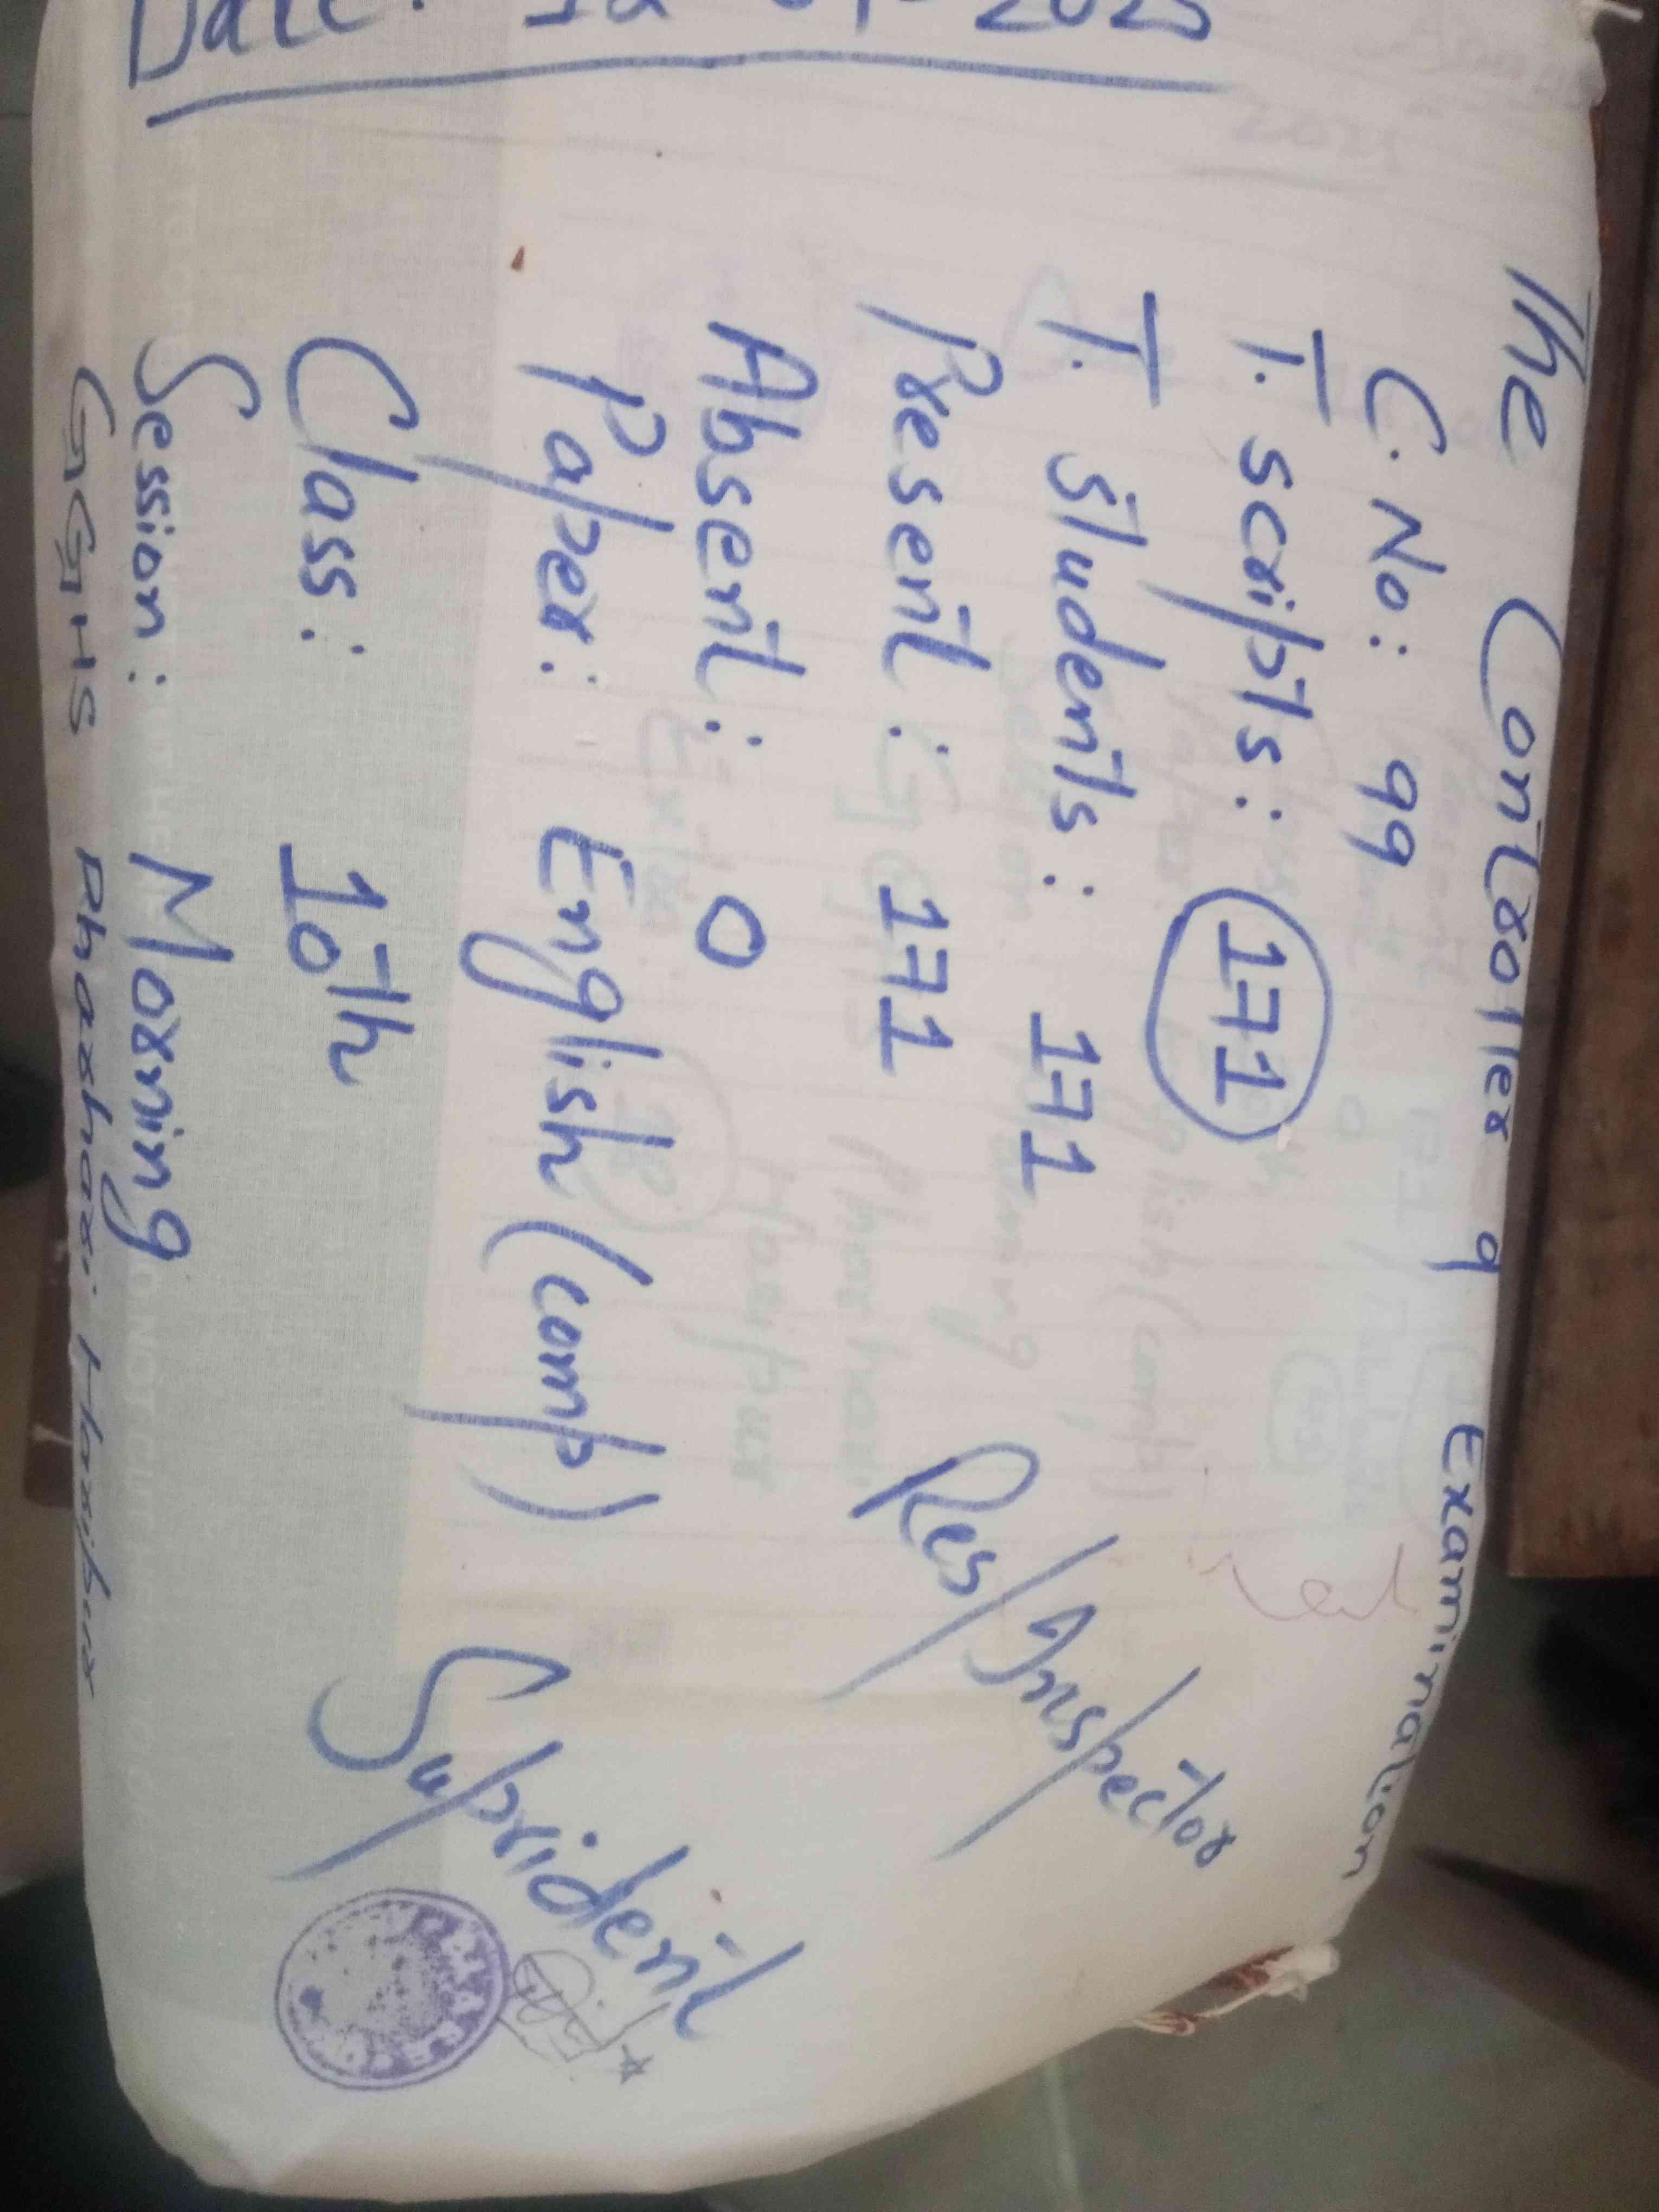 The Controller of Examination
C.No: 99
T. scripts: 171
T. Students: 171
Present: 171
Absent: 0
Paper: English (comp)
Class: 10th
Session: Morning
GGHS Pharhari Haripur
Res/Inspector
Suprident
Date: